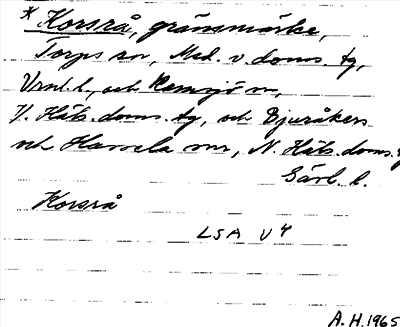 * Korsrå, gränsmärke,
Torps sn, Med. v. doms. tg,
Vrnl. l., och Ramsjö sn,
V. Häls. doms. tg, och Bjuråkers
och Hassela snr, N. Häls. doms. tg
Gävl. l.
Korsrå
LSA V 4
A.H. 1965